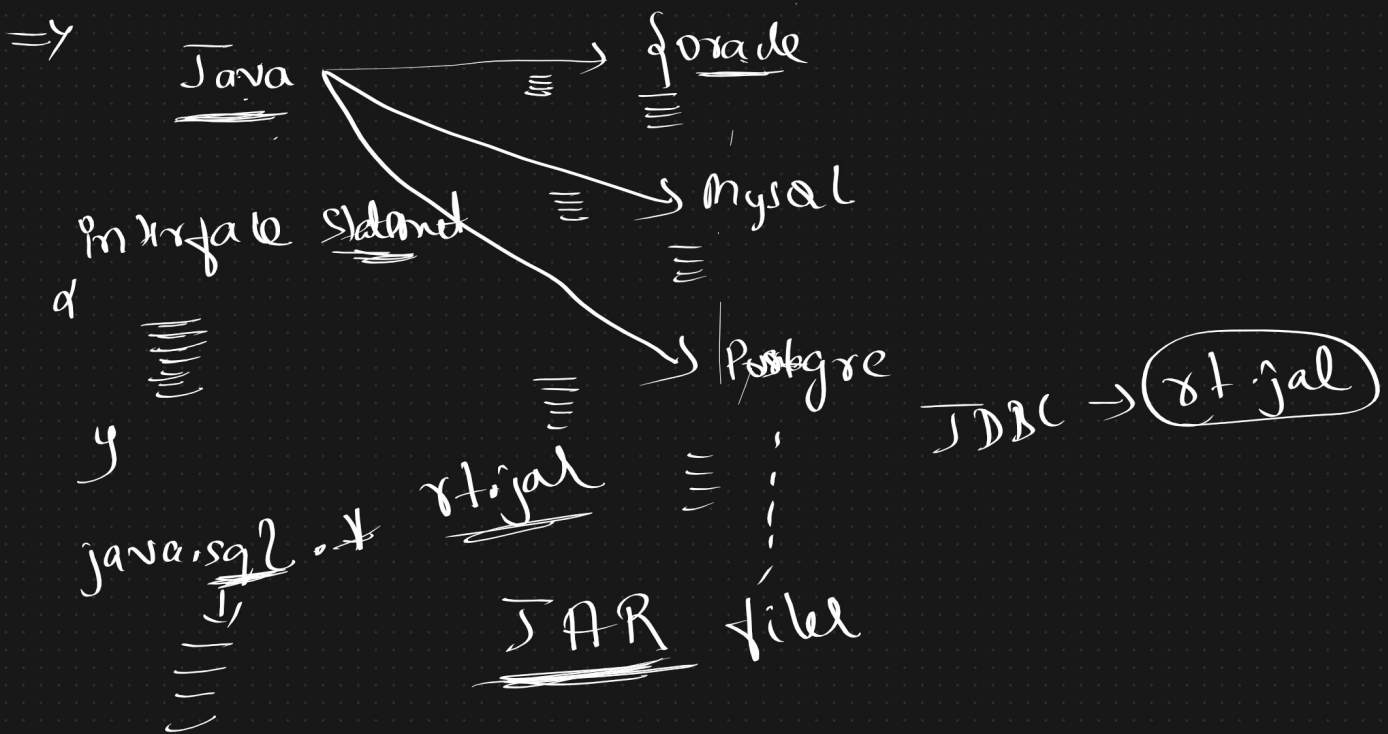 =>
Java
{ Oracle
Mysql
interface Statement
{
Postgre
JDBC -> rt.jar
}
rt.jar
java.sql.*
JAR files